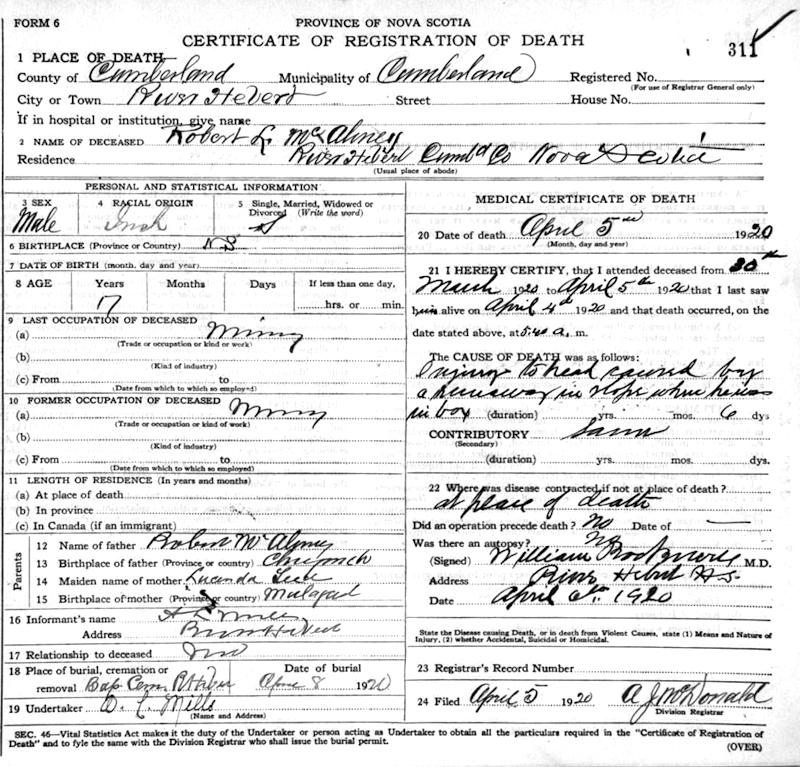 FORM 6
PROVINCE OF NOVA SCOTIA
CERTIFICATE OF REGISTRATION OF DEATH
311
1 PLACE OF DEATH
County of Cumberland Municipality of Cumberland Registered No.
(For use of Registrar General only)
City or Town River Hebert Street House No.
If in hospital or institution, give name
2 NAME OF DECEASED Robert L. McAlmey
Residence River Hebert Cumbd Co Nova Scotia
(Usual place of abode)
PERSONAL AND STATISTICAL INFORMATION
3 SEX 4 RACIAL ORIGIN 5 Single, Married, Widowed or Divorced (Write the word)
Male Irish S
6 BIRTHPLACE (Province or Country) N S
7 DATE OF BIRTH (month, day and year)
8 AGE Years Months Days If less than one day,
17 hrs. or min.
9 LAST OCCUPATION OF DECEASED
(a) Miner
(Trade or occupation or kind of work)
(b)
(Kind of industry)
(c) From to
(Date from which to which so employed)
10 FORMER OCCUPATION OF DECEASED
(a) Miner
(Trade or occupation or kind of work)
(b)
(Kind of industry)
(c) From to
(Date from which to which so employed)
11 LENGTH OF RESIDENCE (In years and months)
(a) At place of death
(b) In province
(c) In Canada (if an immigrant)
Parents
12 Name of father Robert McAlmey
13 Birthplace of father (Province or country)
14 Maiden name of mother Lucinda
15 Birthplace of mother (Province or country)
16 Informant's name
Address River Hebert
17 Relationship to deceased
18 Place of burial, cremation or removal Bap Cem R Heber Date of burial April 8 1920
19 Undertaker Mills
(Name and Address)
MEDICAL CERTIFICATE OF DEATH
20 Date of death April 5th 1920
(Month, day and year)
21 I HEREBY CERTIFY, that I attended deceased from 30th
March 1920 to April 5th 1920 that I last saw
him alive on April 4th 1920 and that death occurred, on the
date stated above, at 5.40 a. m.
The CAUSE OF DEATH was as follows:
Injury to head caused by
a runaway in slope when he was
in box (duration) yrs. mos. 6 dys
CONTRIBUTORY Same
(Secondary)
(duration) yrs. mos. dys.
22 Where was disease contracted if not at place of death?
at place of death
Did an operation precede death? No Date of —
Was there an autopsy? No
(Signed) William M.D.
Address River Hebert N.S.
Date April 6th 1920
State the Disease causing Death, or in death from Violent Causes, state (1) Means and Nature of
Injury, (2) whether Accidental, Suicidal or Homicidal.
23 Registrar's Record Number
24 Filed April 5 1920 A J McDonald
Division Registrar
SEC. 46—Vital Statistics Act makes it the duty of the Undertaker or person acting as Undertaker to obtain all the particulars required in the "Certificate of Registration of
Death" and to fyle the same with the Division Registrar who shall issue the burial permit.
(OVER)